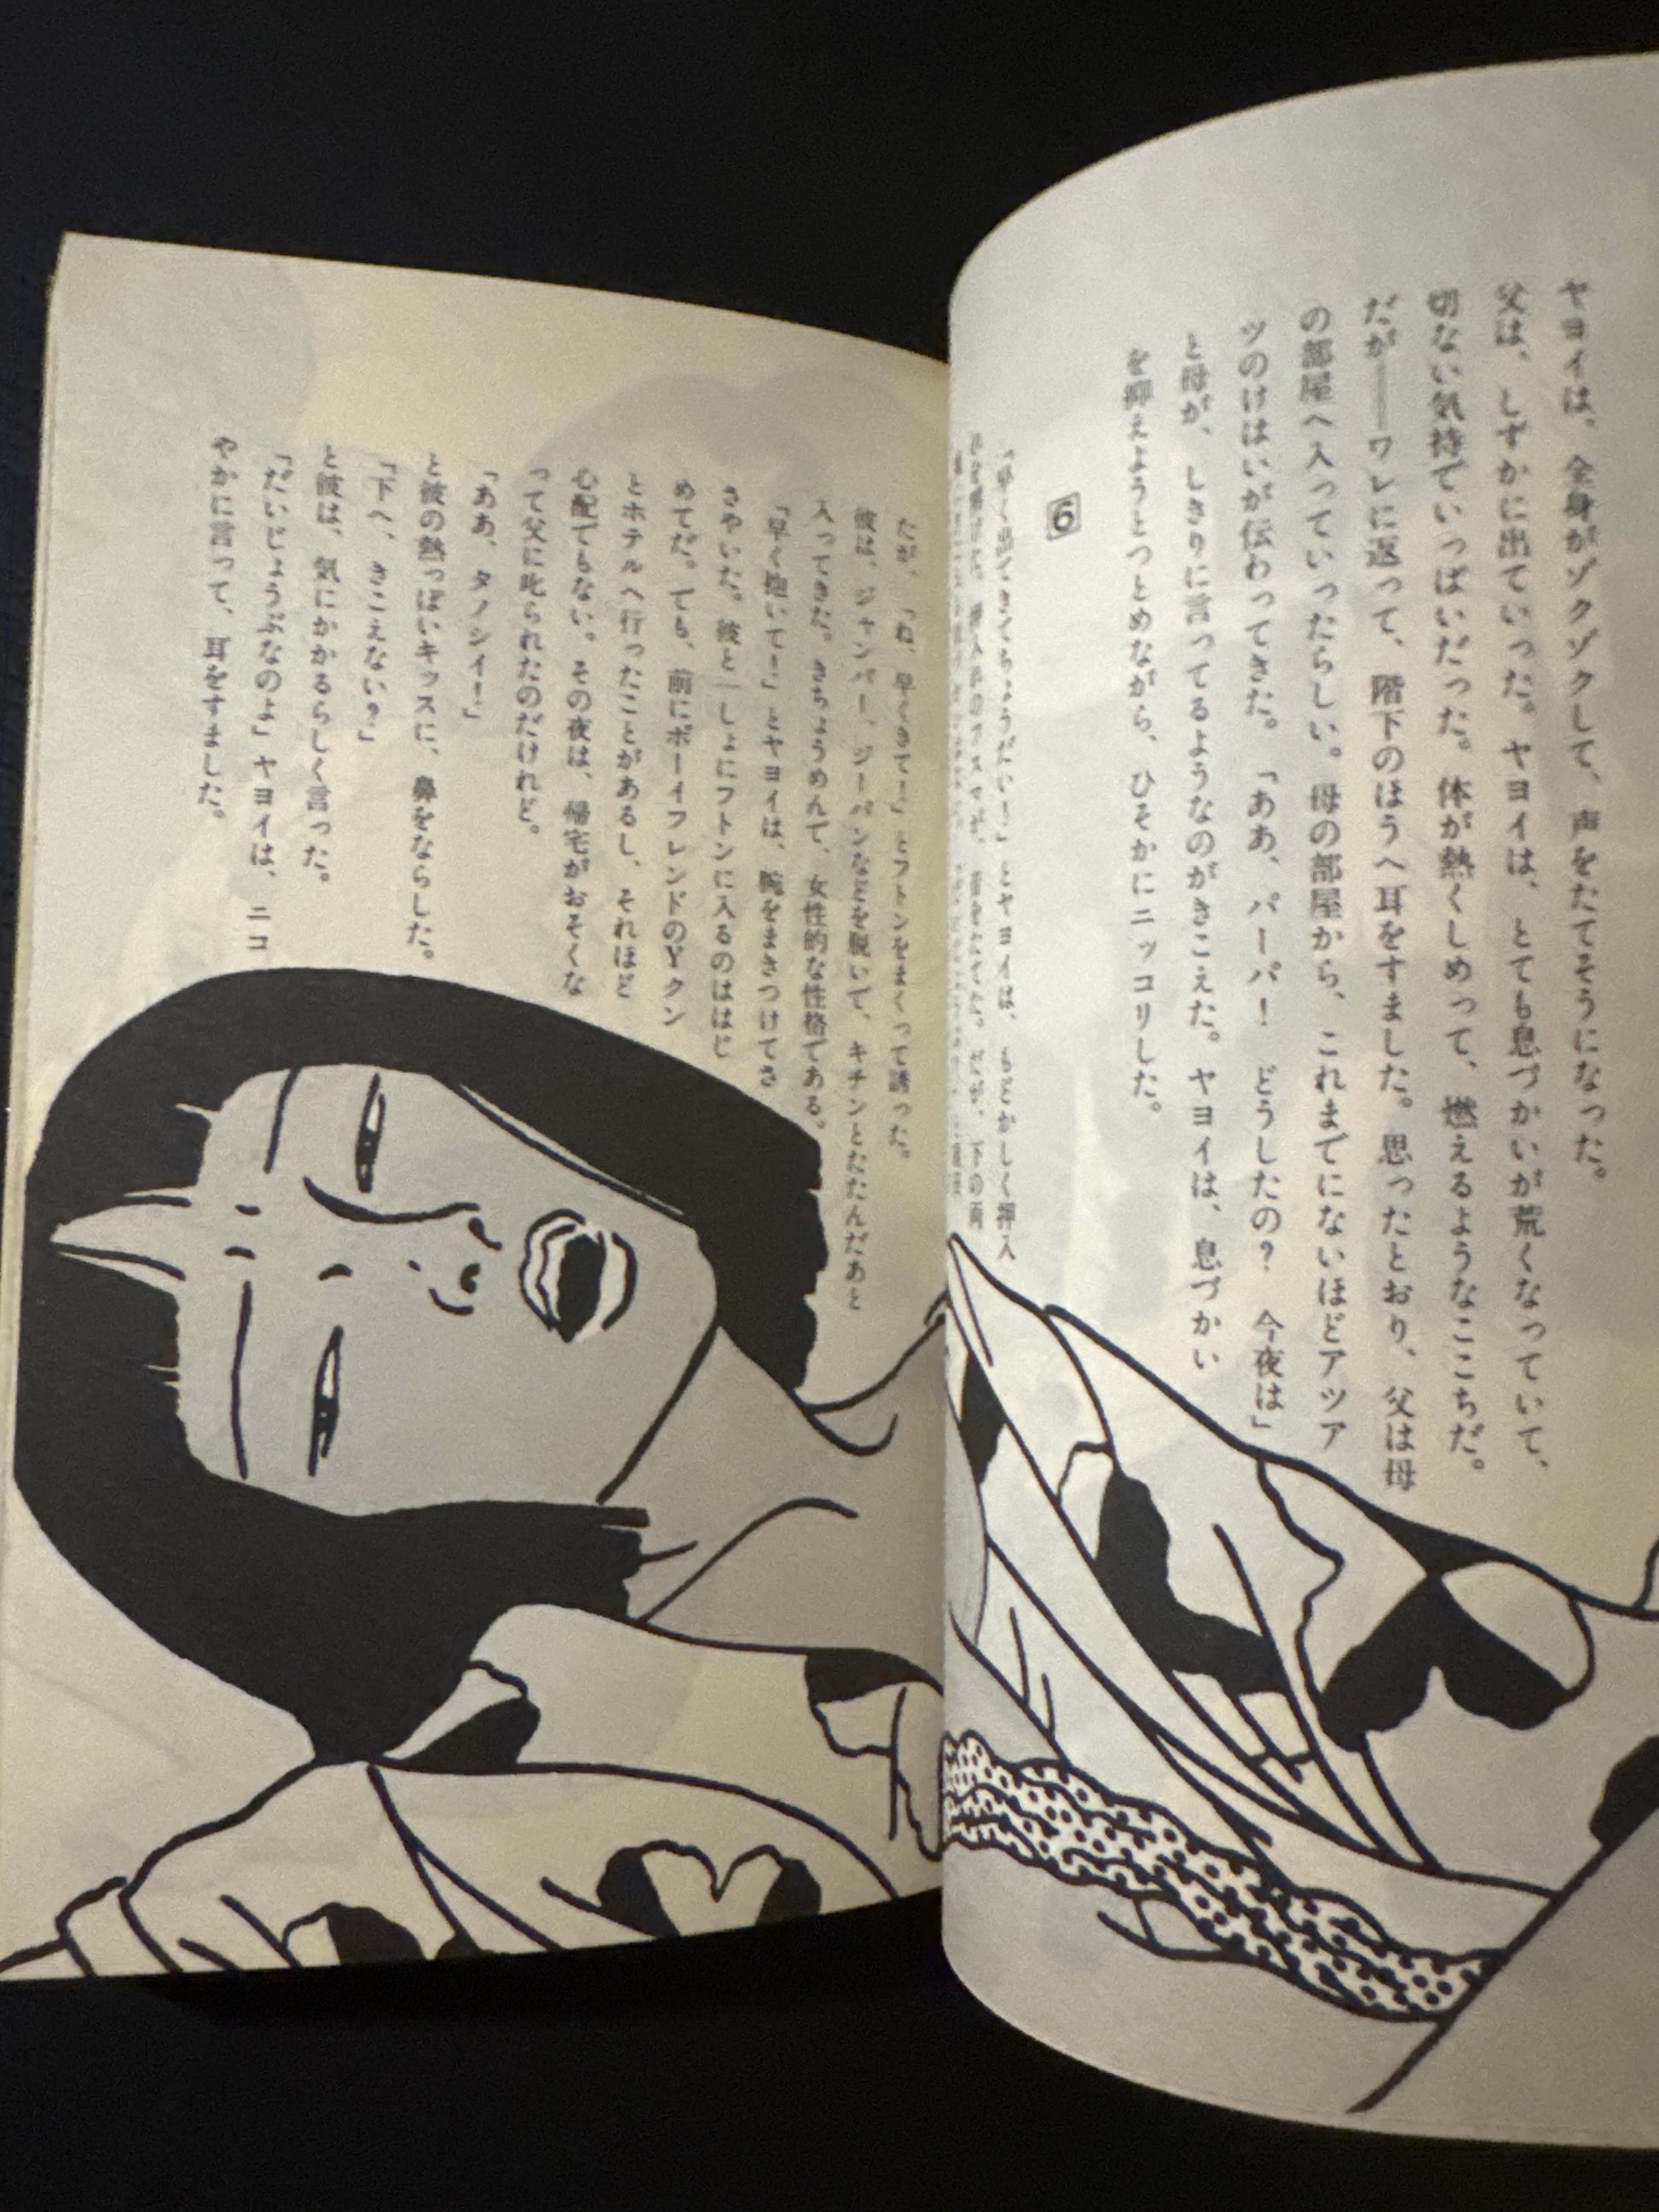 ヤヨイは、全身がゾクゾクして、声をたてそうになった。
父は、しずかに出ていった。ヤヨイは、とても息づかいが荒くなっていて、
切ない気持でいっぱいだった。体が熱くしめって、燃えるようなここちだ。
だが――ワレに返って、階下のほうへ耳をすました。思ったとおり、父は母
の部屋へ入っていったらしい。母の部屋から、これまでにないほどアツア
ツのけはいが伝わってきた。「ああ、パーパ！　どうしたの？　今夜は」
と母が、しきりに言ってるようなのがきこえた。ヤヨイは、息づかい
を抑えようとつとめながら、ひそかにニッコリした。
6
「早く出てきてちょうだい！」とヤヨイは、もどかしく押入
だが、「ね、早くきて！」とフトンをまくって誘った。
彼は、ジャンパー、ジーパンなどを脱いで、キチンとたたんだあと
入ってきた。きちょうめんで、女性的な性格である。
「早く抱いて！」とヤヨイは、腕をまきつけてさ
さやいた。彼と一しょにフトンに入るのははじ
めてだ。でも、前にボーイフレンドのYクン
とホテルへ行ったことがあるし、それほど
心配でもない。その夜は、帰宅がおそくな
って父に叱られたのだけれど。
「ああ、タノシイ！」
と彼の熱っぽいキッスに、鼻をならした。
「下へ、きこえない？」
と彼は、気にかかるらしく言った。
「だいじょうぶなのよ」ヤヨイは、ニコ
やかに言って、耳をすました。